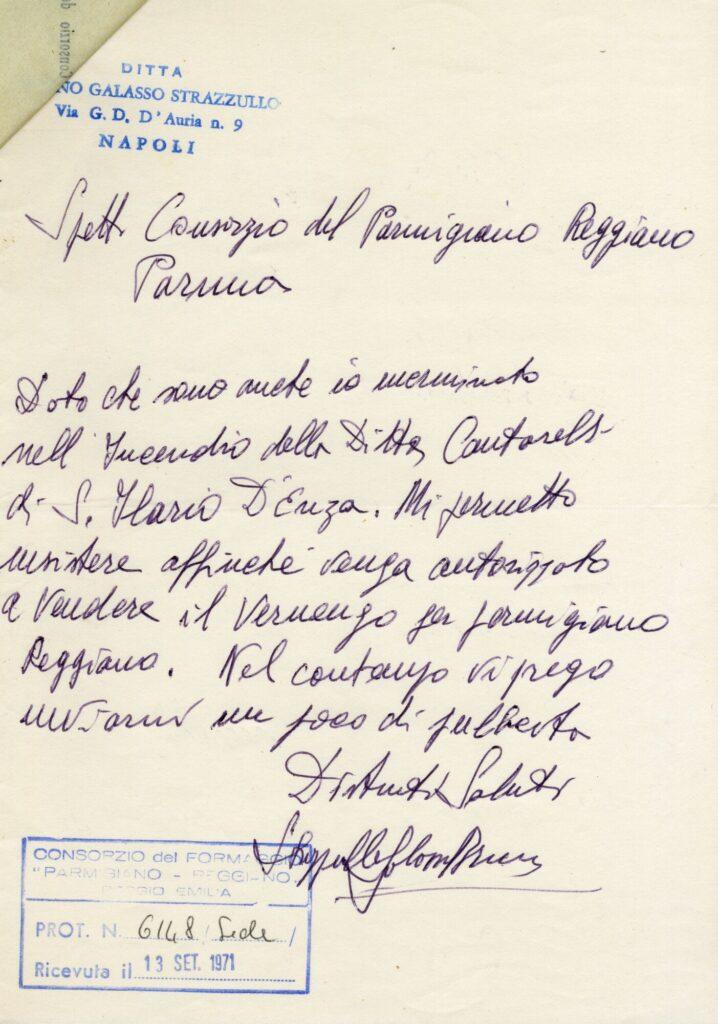 Consorzio de
DITTA
NO GALASSO STRAZZULLO
Via G. D. D'Auria n. 9
NAPOLI
Spett. Consorzio del Parmigiano Reggiano
Parma
Dato che sono anche io
nell Incendio della Ditta Cantarelli
di S. Ilario D'Enza. Mi permetto
insistere affinché venga autorizzato
a Vendere il Vernengo per parmigiano
Reggiano. Nel contempo vi prego
inviarmi un poco di
Distinti Saluti
CONSORZIO del FORMAGGIO
"PARMIGIANO - REGGIANO"
REGGIO EMILIA
PROT. N. 6148 / Sede /
Ricevuta il 13 SET. 1971